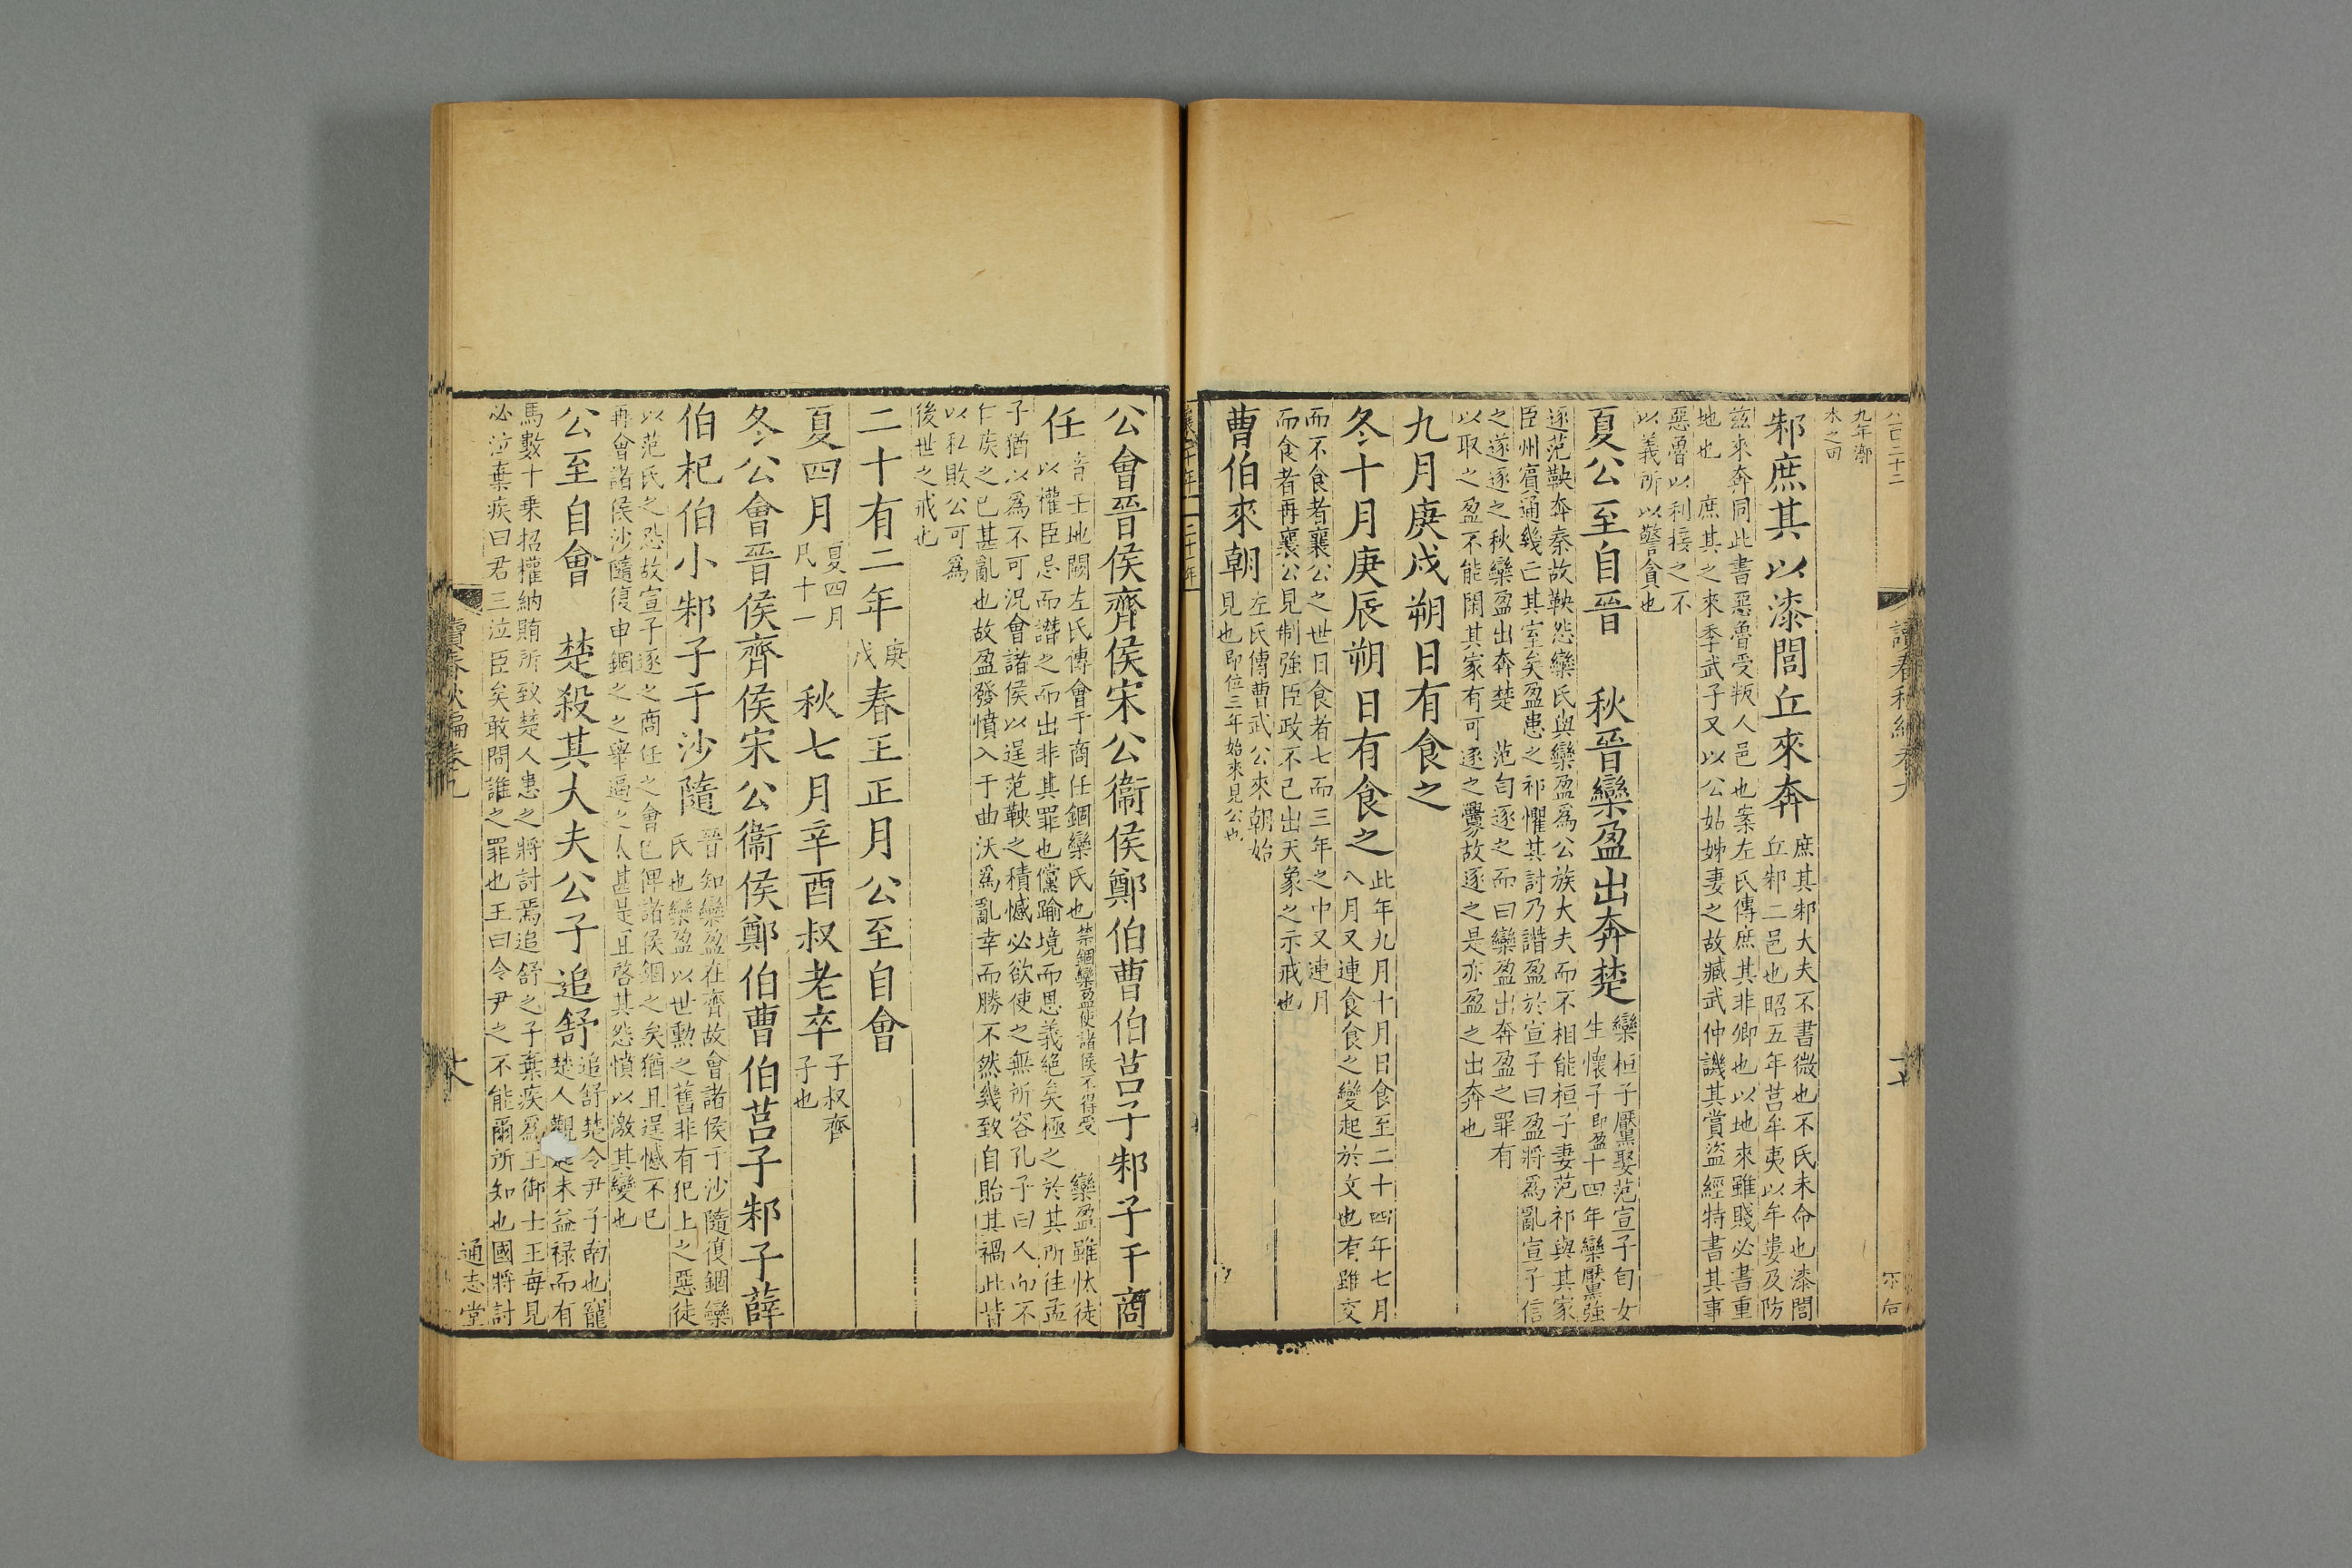 九年漷
水之田
邾庶其以漆閭丘來奔
庶其邾大夫不書微也不氏未命也漆閭
丘邾二邑也昭五年莒牟夷以牟婁及防
茲來奔同此書惡魯受叛人邑也案左氏傳庶其非卿也以地來雖賤必書重
地也 庶其之來季武子又以公姑姊妻之故臧武仲譏其賞盜經特書其事
惡魯以利接之不
以義所以警貪也
夏公至自晉 秋晉欒盈出奔楚
欒桓子黶娶范宣子匄女
生懷子即盈十四年欒黶強
逐范鞅奔秦故鞅怨欒氏與欒盈爲公族大夫而不相能桓子妻范祁與其家
臣州賓通幾亡其室矣盈患之祁懼其討乃譖盈於宣子曰盈將爲亂宣子信
之遂逐之秋欒盈出奔楚 范匄逐之而曰欒盈出奔盈之罪有
以取之盈不能閑其家有可逐之釁故逐之是亦盈之出奔也
九月庚戌朔日有食之
冬十月庚辰朔日有食之
此年九月十月日食至二十四年七月
八月又連食食之變起於文也有雖交
而不食者襄公之世日食者七而三年之中又連月
而食者再襄公見制強臣政不己出天象之示戒也
曹伯來朝
左氏傳曹武公來朝始
見也即位三年始來見公也
公會晉侯齊侯宋公衞侯鄭伯曹伯莒子邾子于商
任
音壬地闕左氏傳會于商任錮欒氏也禁錮欒盈使諸侯不得受 欒盈雖汰徒
以權臣忌而譖之而出非其罪也黨踰境而思義絕矣極之於其所往孟
子猶以爲不可況會諸侯以逞范鞅之積憾必欲使之無所容孔子曰人而不
仁疾之已甚亂也故盈發憤入于曲沃爲亂幸而勝不然幾致自貽其禍此皆
以私敗公可爲
後世之戒也
二十有二年
庚
戌
春王正月公至自會
夏四月
夏四月
凡十一
秋七月辛酉叔老卒
子叔齊
子也
冬公會晉侯齊侯宋公衞侯鄭伯曹伯莒子邾子薛
伯杞伯小邾子于沙隨
晉知欒盈在齊故會諸侯于沙隨復錮欒
氏也欒盈以世勳之舊非有犯上之惡徒
以范氏之怨故宣子逐之商任之會已俾諸侯錮之矣猶且逞憾不已
再會諸侯沙隨復申錮之之舉逼之太甚是且啓其怨憤以激其變也
公至自會 楚殺其大夫公子追舒
追舒楚令尹子南也寵
楚人觀起未益祿而有
馬數十乘招權納賄所致楚人患之將討焉追舒之子棄疾爲王御士王每見
必泣棄疾曰君三泣臣矣敢問誰之罪也王曰令尹之不能爾所知也國將討
讀春秋編卷九
通志堂